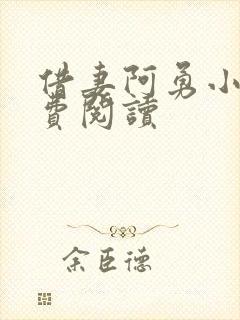 借妻阿勇小
費閱讀
余臣德